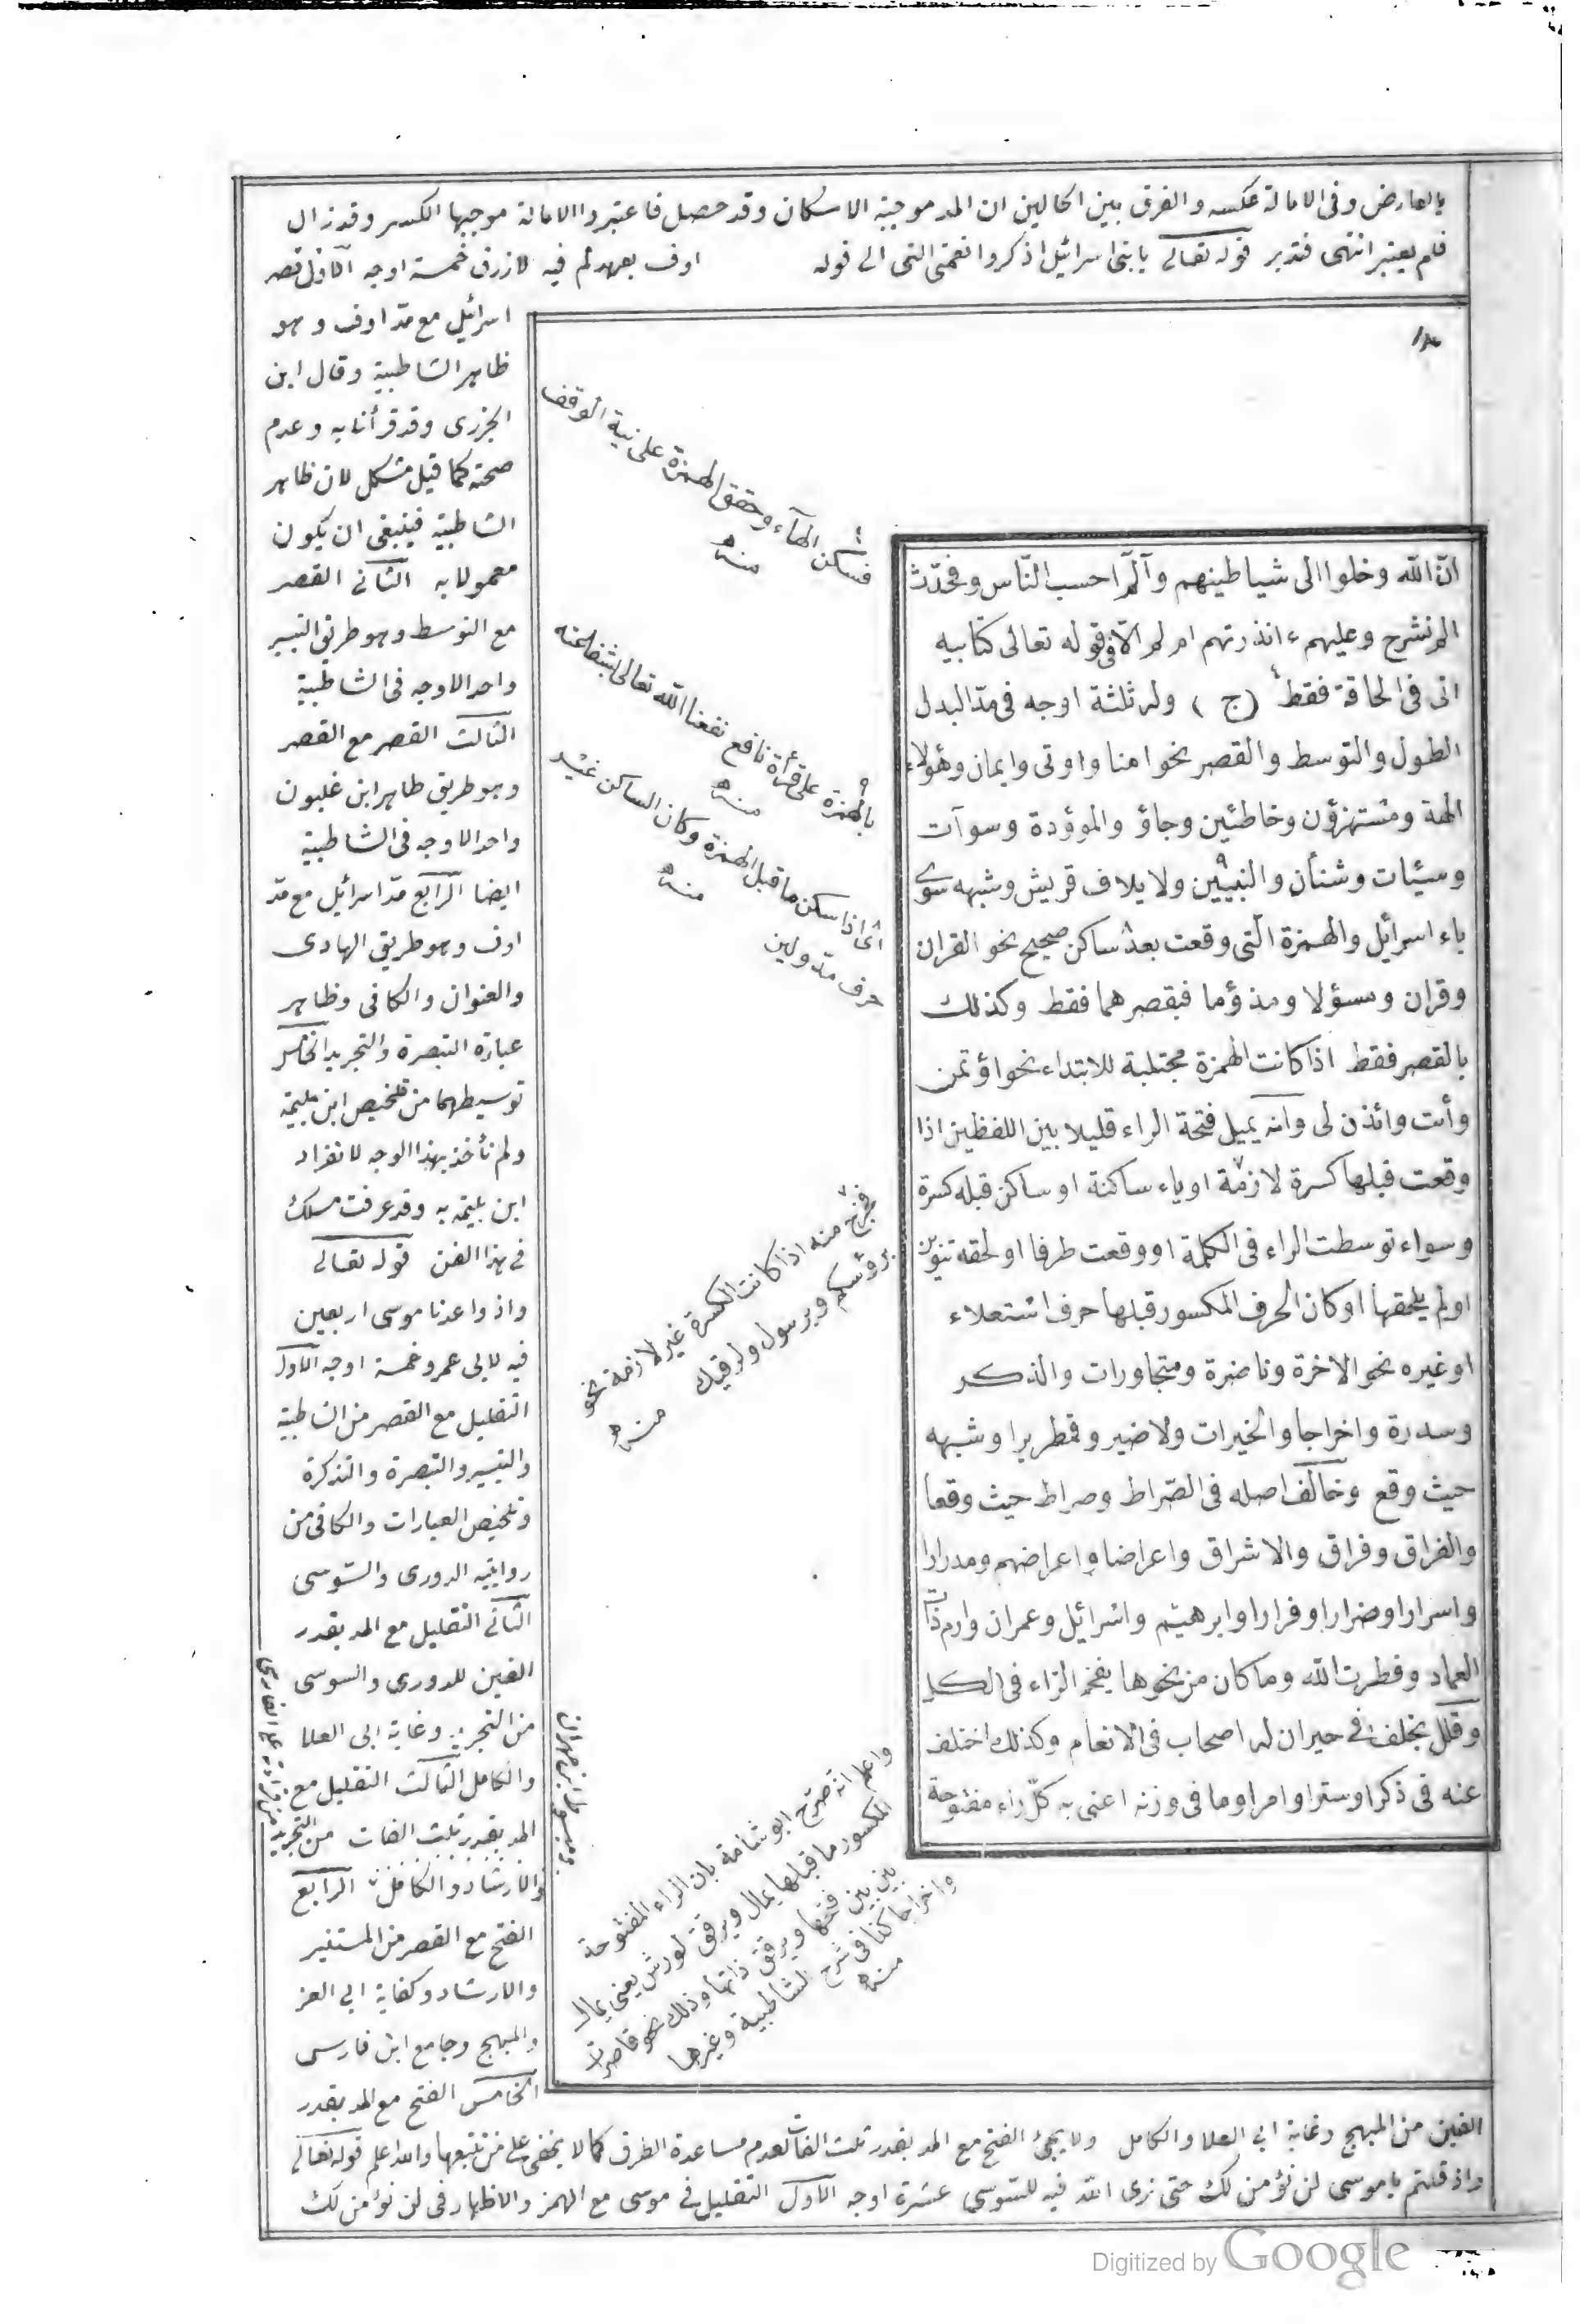 بالعارض وفى الامالة عكسه والفرق بين الحالين ان المد موجبة الاسكان وقد حصل فاعتبر والامالة موجبها الكسر وقد زال
فلم يعتبر انتهى فتدبر قوله تعالى يا بنى اسرائيل اذكروا نعمتى التى الى قوله اوف بعهدكم فيه للازرق خمسة اوجه الاول قصر
اسرائيل مع مد اوف وهو
ظاهر الشاطبية وقال ابن
الجزرى وقد قرأنا به وعدم
صحته كما قيل مشكل لان ظاهر
الشاطبية فينبغى ان يكون
معمولا به الثانى القصر
مع التوسط وهو طريق التيسير
واحد الاوجه فى الشاطبية
الثالث القصر مع القصر
وهو طريق طاهر ابن غلبون
واحد الاوجه فى الشاطبية
ايضا الرابع مد اسرائيل مع مد
اوف وهو طريق الهادى
والعنوان والكافى وظاهر
عبارة التبصرة والتجريد الخامس
توسيطهما من تلخيص ابن بليمة
ولم نأخذ بهذا الوجه لانفراد
ابن بليمة به وقد عرفت مسلك
فى هذا الفن قوله تعالى
واذ واعدنا موسى اربعين
فيه لابى عمرو خمسة اوجه الاول
التقليل مع القصر من الشاطبية
والتيسير والتبصرة والتذكرة
وتلخيص العبارات والكافى من
روايتيه الدورى والسوسى
الثانى التقليل مع المد بقدر
الفين للدورى والسوسى
من التجريد وغاية ابى العلا
والكامل الثالث التقليل مع
المد بقدر ثلث الفات
والارشاد والكامل الرابع
الفتح مع القصر من المستنير
والارشاد وكفاية ابى العز
والمبهج وجامع ابن فارس
الخامس الفتح مع المد بقدر
الفين من المبهج وغاية ابى العلا والكامل ولا يجئ الفتح مع المد بقدر ثلث الفات لعدم مساعدة الطرق كما لا يخفى على من تتبعها والله اعلم قوله تعالى
واذ قلتم يا موسى لن نؤمن لك حتى نرى الله فيه للسوسى عشرة اوجه الاول التقليل فى موسى مع الهمز والاظهار فى لن نؤمن لك
انّ الله وخلوا الى شياطينهم وآلمّ احسب النّاس وفحدّث
الم نشرح وعليهم ءانذرتهم ام لم الّا فى قوله تعالى كتابيه
انى فى الحاقة فقط (ج) وله ثلثة اوجه فى مدّ البدل
الطول والتوسط والقصر نحو امنا واوتى وايمان وهؤلاء
الهة ومستهزؤن وخاطئين وجاؤ والموؤدة وسوآت
وسيئات وشنأن والنبيّين ولايلاف قريش وشبهه سوى
ياء اسرائيل والهمزة الّتى وقعت بعد ساكن صحيح نحو القران
وقران ومسؤلا ومذؤما فبقصرهما فقط وكذلك
بالقصر فقط اذا كانت الهمزة مجتلبة للابتداء نحو اؤتمن
وأت وائذن لى وانه يميل فتحة الراء قليلا بين اللفظين اذا
وقعت قبلها كسرة لازمة او ياء ساكنة او ساكن قبله كسرة
وسواء توسطت الراء فى الكلمة او وقعت طرفا او لحقه تنوين
او لم يلحقها او كان الحرف المكسور قبلها حرف استعلاء
او غيره نحو الاخرة وناضرة ومتجاورات والذكر
وسدرة واخراجا والخيرات ولا ضير وقمطريرا وشبهه
حيث وقع وخالف اصله فى الصّراط وصراط حيث وقعا
والفراق وفراق والاشراق واعراضا واعراضهم ومدرارا
واسرارا وضرارا وفرارا وابرهيم واسرائيل وعمران وارم ذات
العماد وفطرت الله وما كان من نحوها بفخم الرّاء فى الكل
وقلّل بخلف فى حيران له اصحاب فى الانعام وكذلك اختلف
عنه فى ذكرا وسترا وامرا وما فى وزنه اعنى به كلّ راء مفتوحة
فسكن الهاء وحقق الهمزة على نية الوقف
منه
بالهمزة على قرأة نافع نفعنا الله تعالى بشفاعته
منه
اى اذا سكن ما قبل الهمزة وكان الساكن غير
حرف مد ولين
منه
فخرج منه اذا كانت الكسرة غير لازمة نحو
برؤسكم وبرسول ولرقيك
منه
واعلم انه صرّح ابو شامة بان الراء المفتوحة
المكسور ما قبلها يمال ويرقق لورش يعنى يمال
بين بين فتحها ويرقق ذاتها وذلك نحو قاصرات
واخراجا كذا فى شرح الشاطبية وغيرها
منه
Digitized by Google